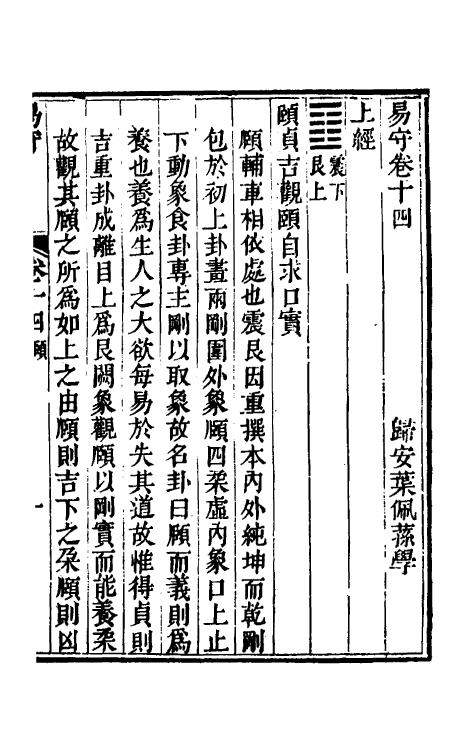 易守卷十四
歸安葉佩蓀學
上經
震下
艮上
頤貞吉觀頤自求口實
頤輔車相依處也震艮因重撰本內外純坤而乾剛
包於初上卦畫兩剛圍外象頤四柔虛內象口上止
下動象食卦專主剛以取象故名卦曰頤而義則為
養也養為生人之大欲每易於失其道故惟得貞則
吉重卦成離目上為艮闕象觀頤以剛實而能養柔
故觀其頤之所為如上之由頤則吉下之朶頤則凶
易守
卷十四 頤
一